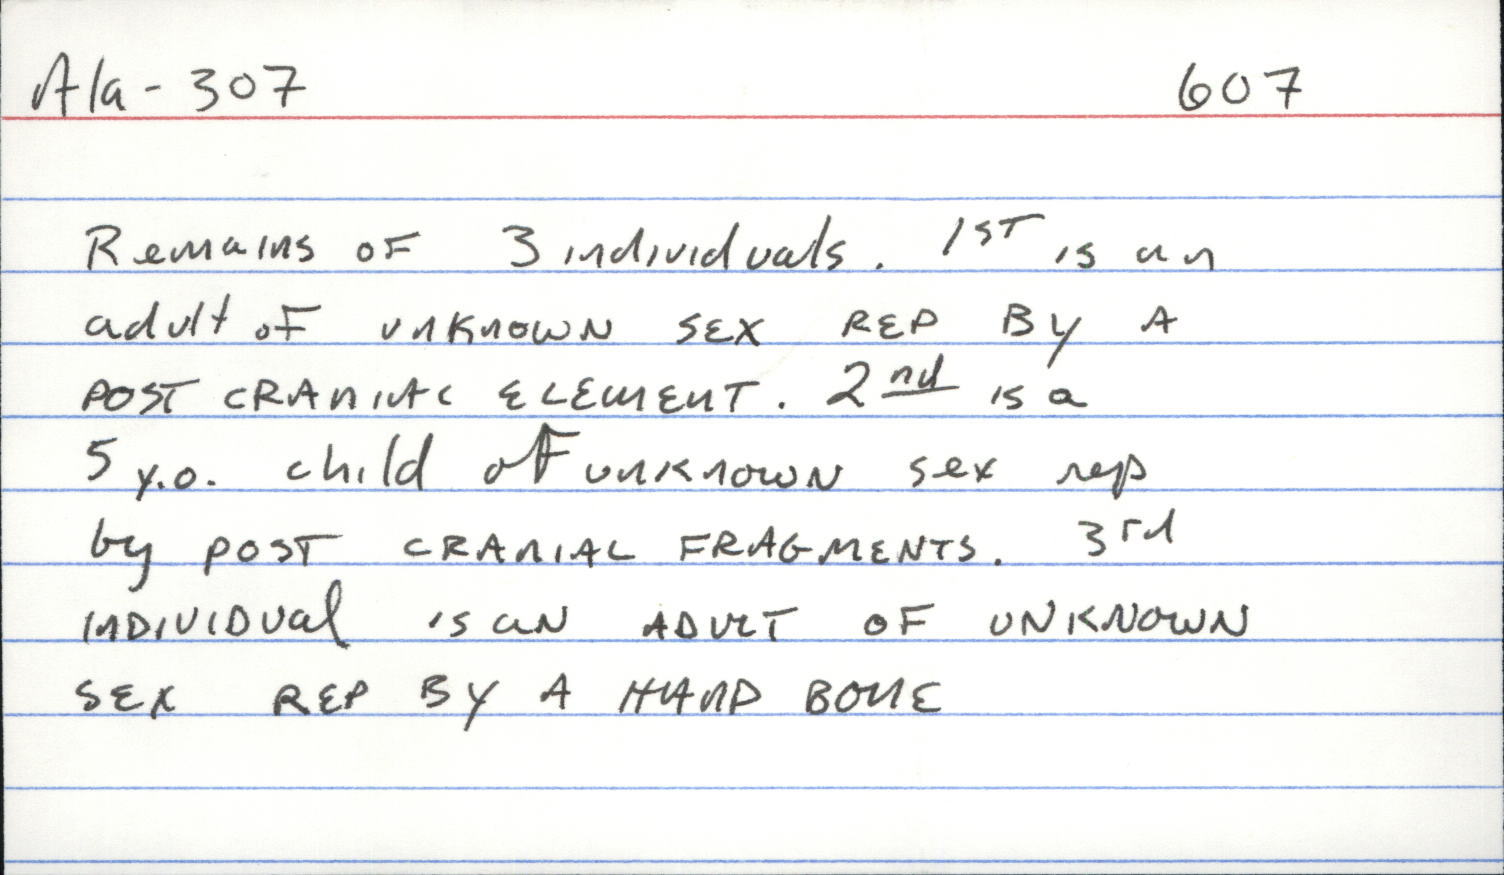 Ala-307 607
Remains of 3 individuals. 1ST is an
adult of unknown SEX REP BY A
POST CRANIAL ELEMENT. 2nd is a
5 y.o. child of unknown sex rep
by POST CRANIAL FRAGMENTS. 3rd
INDIVIDUAL is an ADULT OF UNKNOWN
SEX REP BY A HAND BONE